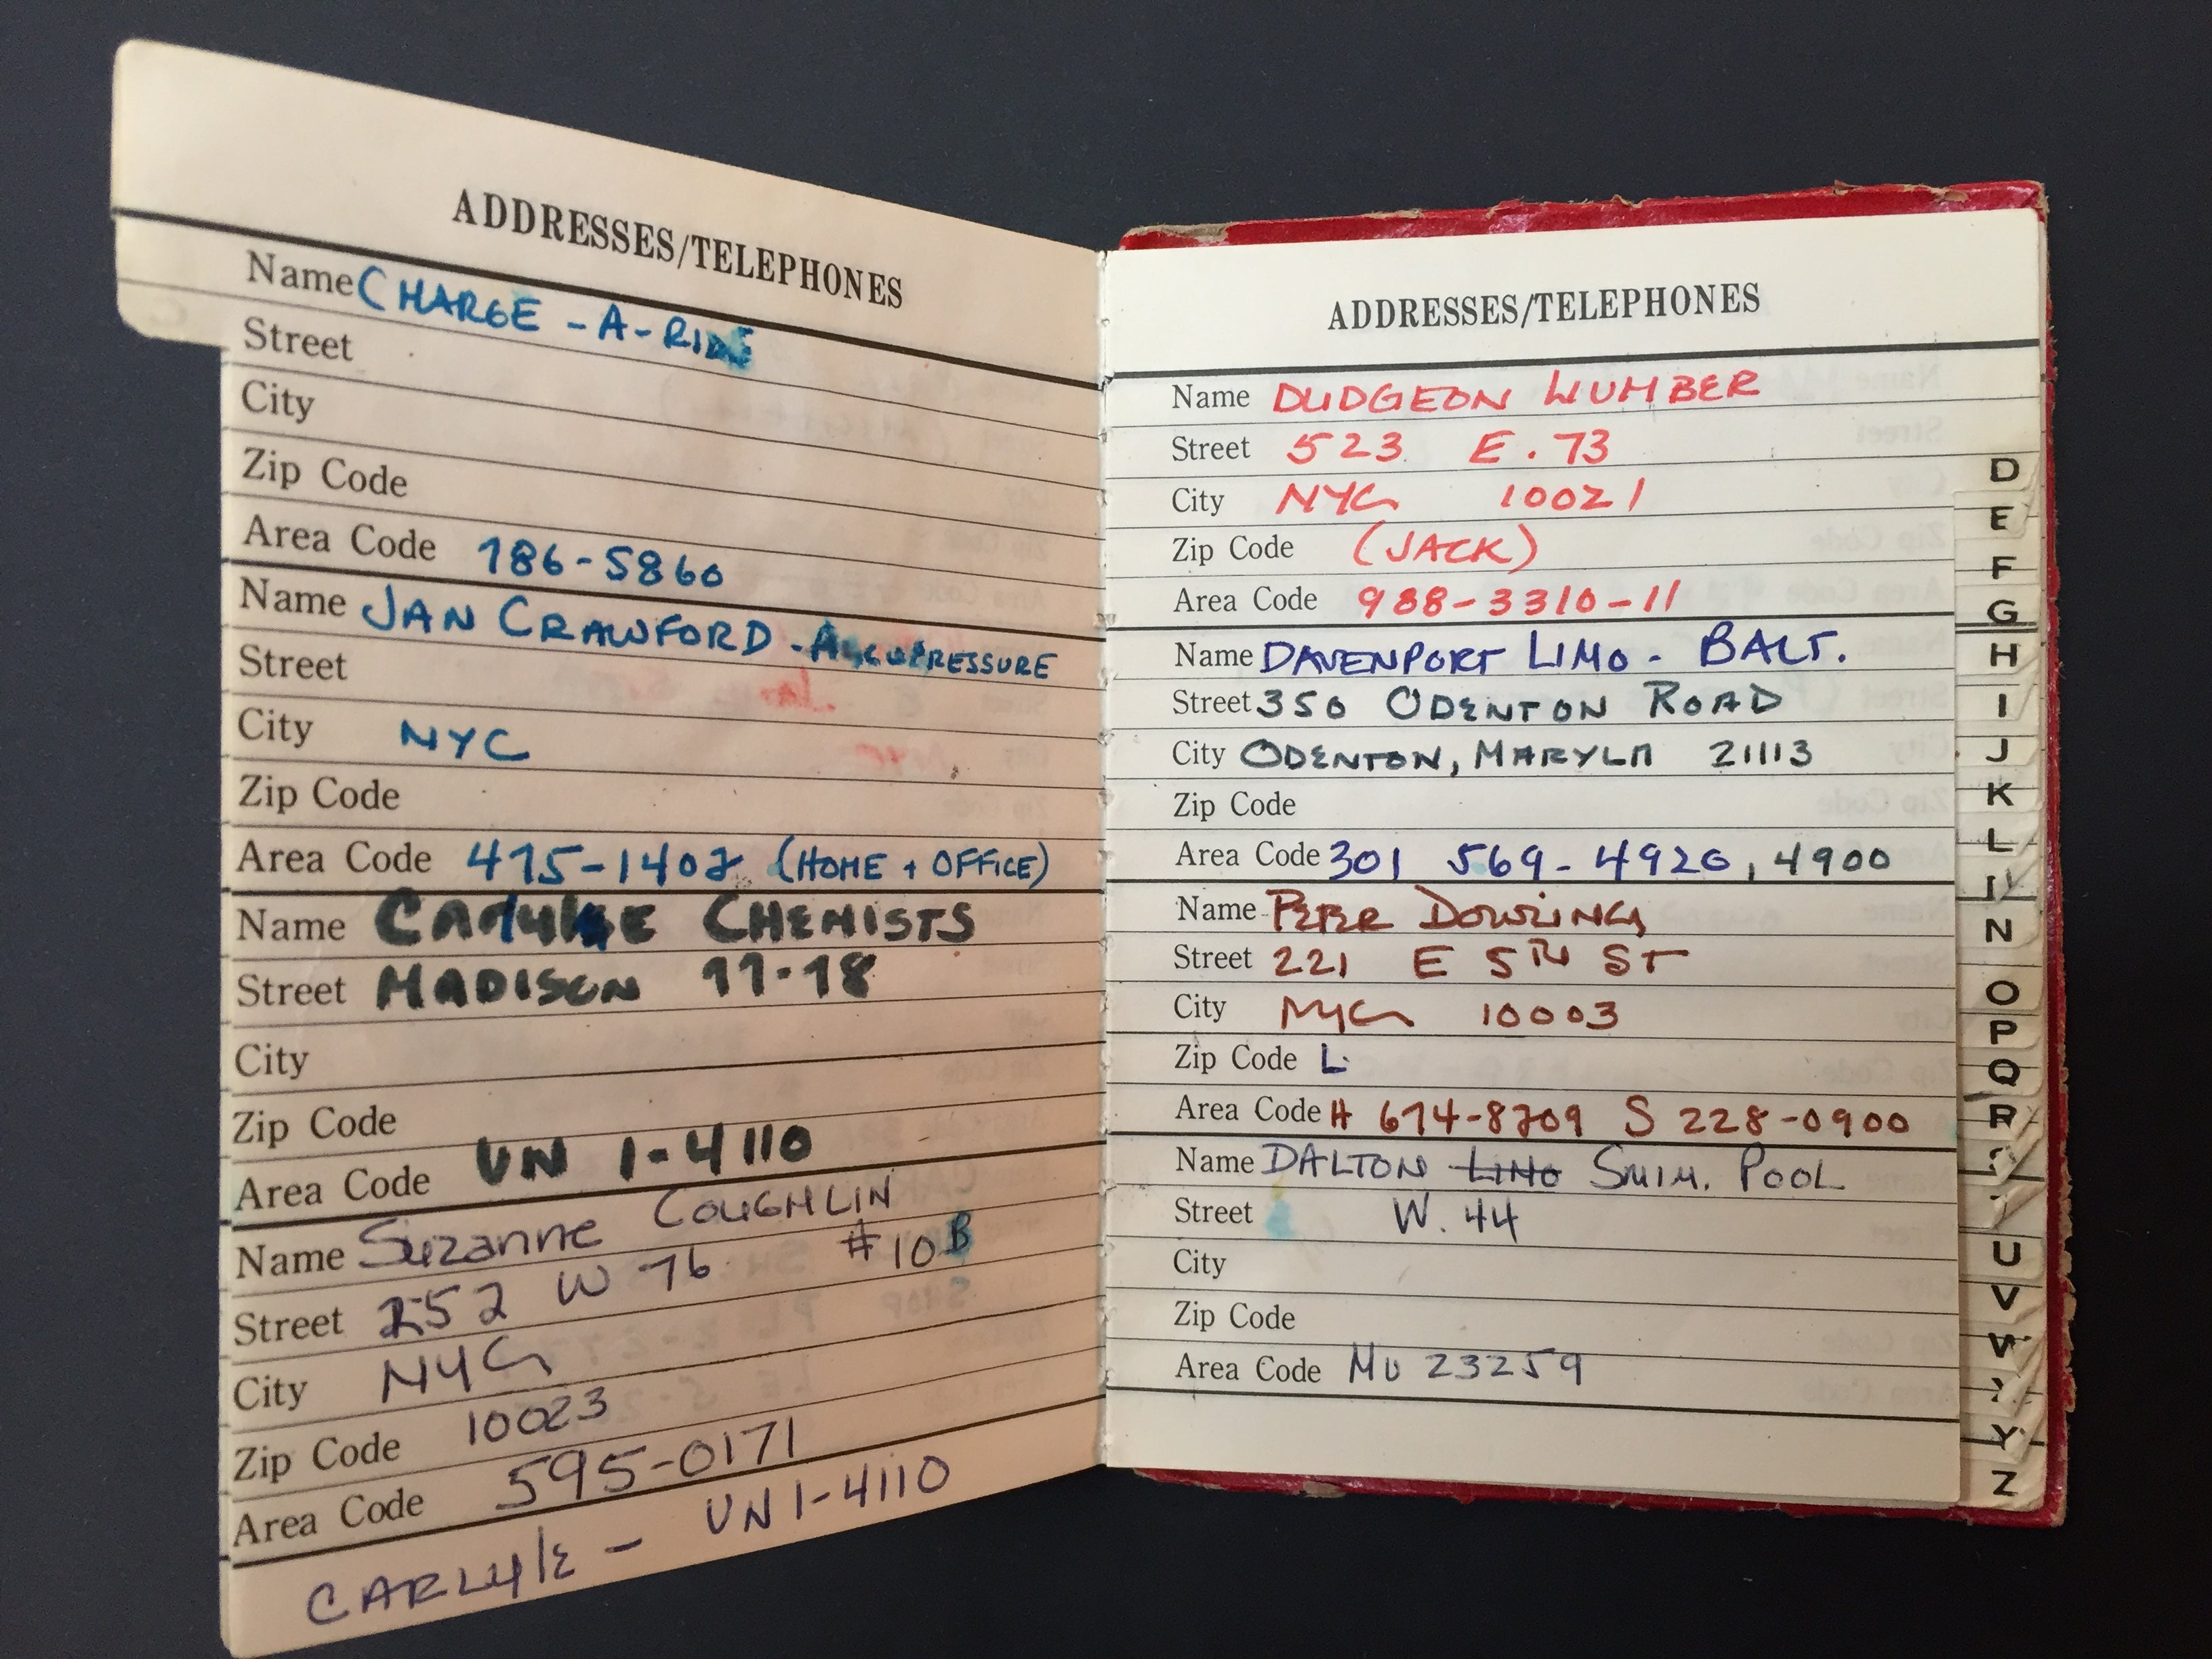 ADDRESSES/TELEPHONES
Name CHARGE-A-RIDE
Street
City
Zip Code
Area Code 786-5860
Name JAN CRAWFORD - ACCUPRESSURE
Street
City NYC
Zip Code
Area Code 475-1402 (HOME + OFFICE)
Name CARLYLE CHEMISTS
Street MADISON 77-78
City
Zip Code
Area Code UN 1-4110
Name Suzanne COUGHLIN
Street 252 W 76 #10B
City NYC
Zip Code 10023
Area Code 595-0171
CARLYlE - UN1-4110
ADDRESSES/TELEPHONES
Name DUDGEON LUMBER
Street 523 E. 73
City NYC 10021
Zip Code (JACK)
Area Code 988-3310-11
Name DAVENPORT LIMO - BALT.
Street 350 ODENTON ROAD
City ODENTON, MARYLA 21113
Zip Code
Area Code 301 569-4920, 4900
Name PETER DOWLING
Street 221 E 5TH ST
City NYC 10003
Zip Code L
Area Code H 674-8709 S 228-0900
Name DALTON LIMO SWIM. POOL
Street W. 44
City
Zip Code
Area Code MU 23259
D
E
F
G
H
I
J
K
L
N
O
P
Q
R
U
V
W
Y
Z